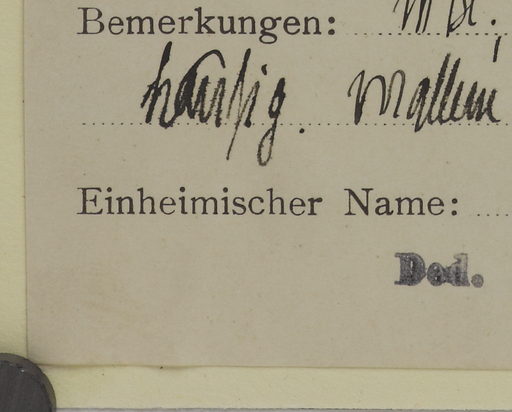 Bemerkungen:
häufig.
Einheimischer Name:
Ded.